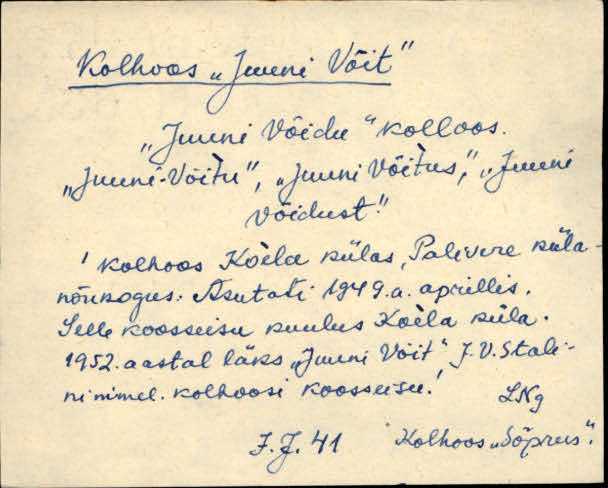 Kolhoos „Juuni Võit"
„Juuni Võidu" kolloos.
„Juuni-Võitu", „Juuni Võitus", „Juuni
võidust".
' Kolhoos Kõela külas, Palivere küla-
nõukogus. Asutati 1949.a. aprillis.
Selle koosseisu kuulus Koèla küla.
1952. aastal läks „Juuni Võit" J.V. Stali-
ninimel. kolhoosi koosseisu.'
LNg
J.J. 41 Kolhoos „Sõprus".